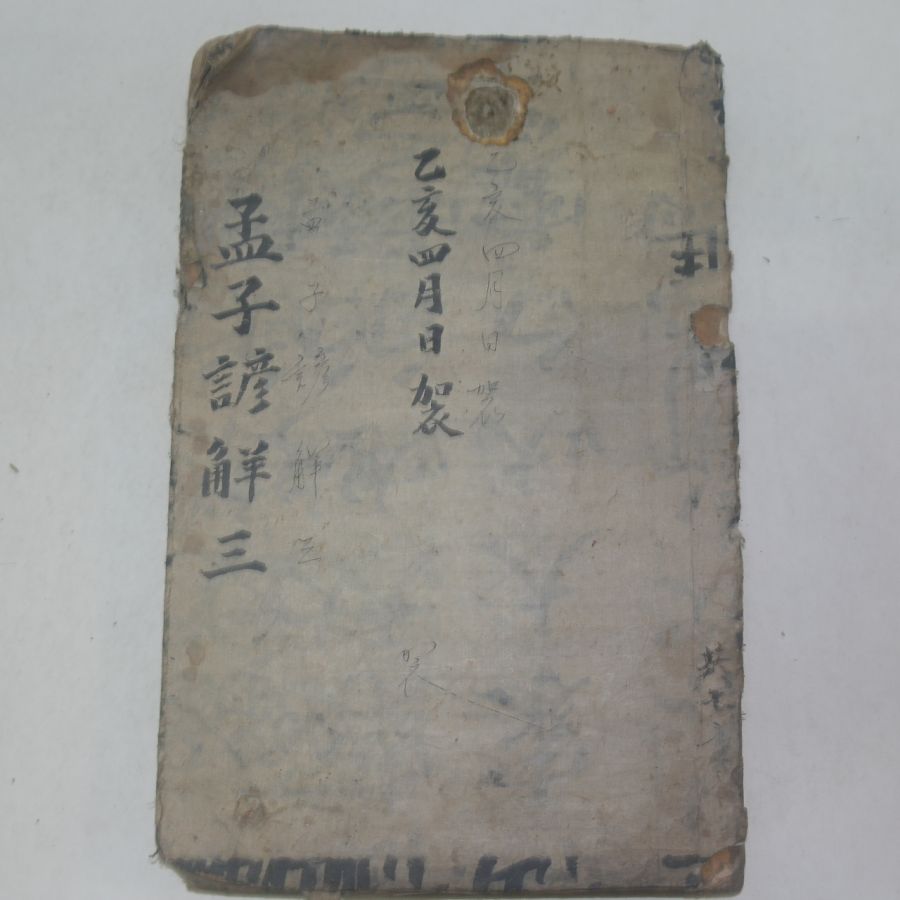 共七
乙亥四月日袈
乙亥四月日袈
孟子諺解三
孟子諺解三